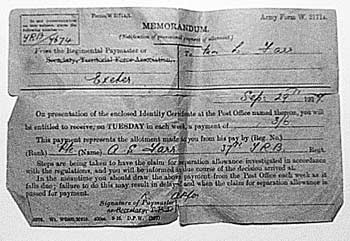 In any correspondence
on this subject, please quote
number
YRB/9874
Forms/W. 2171A/1.
Army Form W. 2171a.
MEMORANDUM.
(Notification of provisional payment of allowance.)
From the Regimental Paymaster or
To Mrs L. Farr
Secretary, Territorial Force Association,
Exeter
Sept 29th 19
On presentation of the enclosed Identity Certificate at the Post Office named thereon, you will
be entitled to receive, on TUESDAY in each week, a payment of 3/6
This payment represents the allotment made to you from his pay by (Reg. No.)
(Rank) Pte (Name) A E Farr 37th T.R.B. Regt.
Steps are being taken to have the claim for separation allowance investigated in accordance
with the regulations, and you will be informed in due course of the decision arrived at.
In the meantime you should draw the above payment from the Post Office each week as it
falls due; failure to do this may result in delays and when the claim for separation allowance is
passed for payment.
Signature of Paymaster
or Secretary, T.F.A.